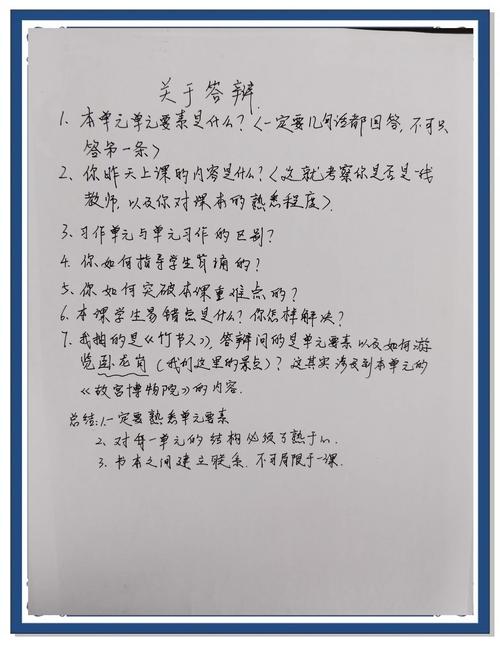 关于答辩
1、本单元单元要素是什么?(一定要几句话都回答,不可只
答第一条)
2、你昨天上课的内容是什么?(这就考察你是否是一线
教师,以及你对课本的熟悉程度).
3、习作单元与单元习作的区别?
4、你如何指导学生背诵的?
5、你如何突破本课重难点的?
6、本课学生易错点是什么?你怎样解决?
7、我抽的是《竹节人》,答辩问的是单元要素以及如何游
览卧龙岗(我们这里的景点)?这其实涉及到本单元的
《故宫博物院》的内容.
总结:1.一定要熟悉单元要素
2、对每一单元的结构必须了熟于心.
3、书本之间建立联系.不可局限于一课.